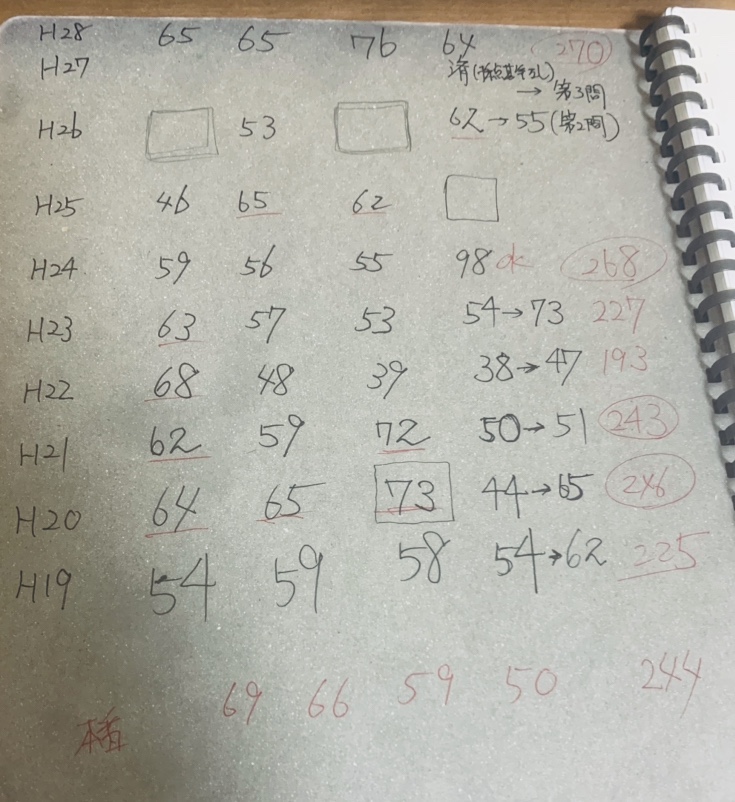 H28 65 65 76 64 270
H27 済(採点基準乱)
→ 第3問
H26 53 62→55(第2問)
H25 46 65 62
H24 59 56 55 98 ok 268
H23 63 57 53 54→73 227
H22 68 48 39 38→47 193
H21 62 59 72 50→51 243
H20 64 65 73 44→65 246
H19 54 59 58 54→62 225
69 66 59 50 244
本番